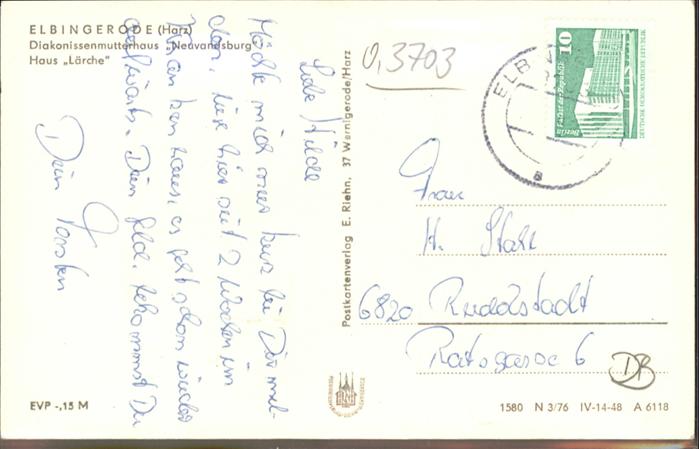 ELBINGERODE (Harz)
Diakonissenmutterhaus „Neuvandsburg"
Haus „Lärche"
Liebe Hilde
Möchte mich nur kurz bei Dir mel-
den, liege hier seit 2 Wochen im
Kranken haus, es geht schon wieder
aufwärts. Dein Geld bekommst Du
Dein Torsten
EVP -,15 M
Postkartenverlag E. Riehn, 37 Wernigerode/Harz
0,3703
ELB
a
10
Berlin, Palast der Republik
DEUTSCHE DEMOKRATISCHE REPUBLIK
Frau
H. Stahl
6820 Rudolstadt
Ratsgasse 6
DB
1580 N 3/76 IV-14-48 A 6118